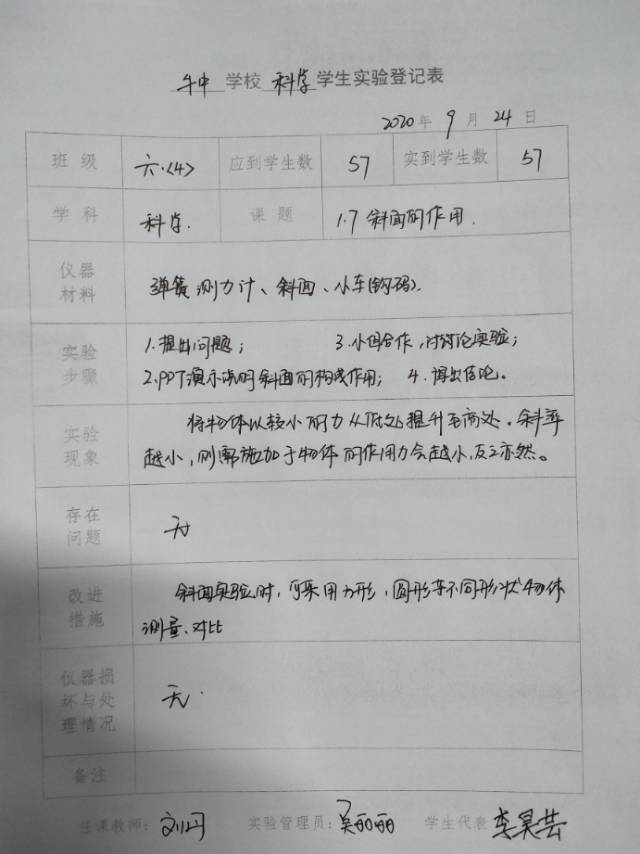 牛中 学校 科学 学生实验登记表
2020 年 9 月 24 日
班 级 六.<4> 应到学生数 57 实到学生数 57
学 科 科学. 课 题 1.7 斜面的作用.
仪器
材料
弹簧测力计、斜面、小车(钩码).
实验
步骤
1.提出问题; 3.小组合作,讨论实验;
2.PPT演示说明斜面的构成作用; 4.得出结论。
实验
现象
将物体以较小的力从低处提升至高处。斜率
越小,则需施加于物体的作用力会越小,反之亦然。
存在
问题
无
改进
措施
斜面实验时,可采用方形,圆形等不同形状物体
测量、对比
仪器损
坏与处
理情况
无.
备注
任课教师: 刘丹 实验管理员: 吴丽丽 学生代表 李昊芸